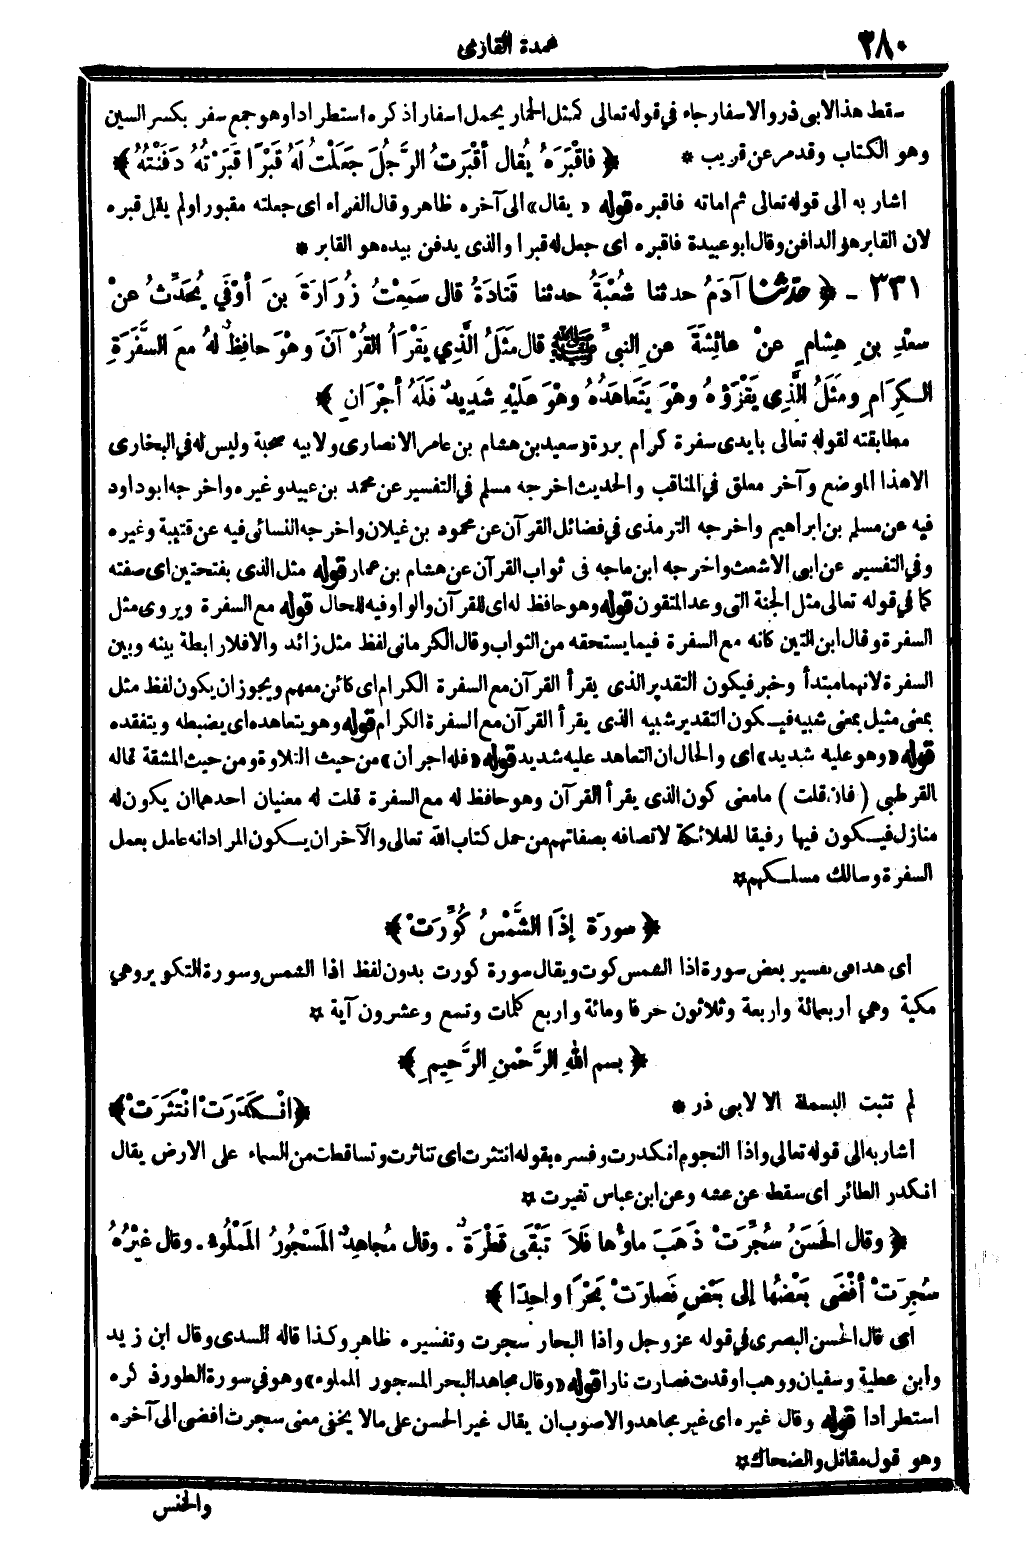 ٢٨٠
عمدة القارئ
سقط هذا لابى ذر والاسفار جاء في قوله تعالى كمثل الحمار يحمل اسفارا ذكره استطرادا وهو جمع سفر بكسر السين
وهو الكتاب وقد مر عن قريب * ﴿ فَاقْبَرَهُ يُقال أقْبَرْتُ الرَّجُلَ جَعَلْتُ لَهُ قَبْرًا قَبَرْتُهُ دَفَنْتُهُ ﴾
اشار به الى قوله تعالى ثم اماته فاقبره قوله « يقال» الى آخره ظاهر وقال الفراء اى جعلته مقبورا ولم يقل قبره
لان القابر هو الدافن وقال ابو عبيدة فاقبره اى جعل له قبرا والذى يدفن بيده هو القابر *
٣٣١ - ﴿ حدثنا آدَمُ حدثنا شُعْبَةُ حدثنا قَتَادَةُ قال سَمِعْتُ زُرَارَةَ بنَ أوْفَي يُحَدِّثُ عنْ
سعْدِ بنِ هِشامٍ عنْ عائِشَةَ عنِ النبيِّ ﷺ قال مَثَلُ الَّذِي يَقْرَأُ القُرْآنَ وهْوَ حافِظٌ لهُ معَ السَّفَرَةِ
الكِرَامِ ومَثَلُ الَّذِي يَقْرَؤهُ وهْوَ يَتَعاهَدُهُ وهْوَ عَلَيْهِ شَدِيدٌ فَلَهُ أجْرَانِ ﴾
مطابقته لقوله تعالى بايدى سفرة كرام بررة وسعيد بن هشام بن عامر الانصارى ولابيه صحبة وليس له في البخارى
الا هذا الموضع وآخر معلق في المناقب والحديث اخرجه مسلم في التفسير عن محمد بن عبيد وغيره واخرجه ابو داود
فيه عن مسلم بن ابراهيم واخرجه الترمذى في فضائل القرآن عن محمود بن غيلان واخرجه النسائى فيه عن قتيبة وغيره
وفي التفسير عن ابى الاشعث واخرجه ابن ماجه في ثواب القرآن عن هشام بن عمار قوله مثل الذى بفتحتين اى صفته
كما في قوله تعالى مثل الجنة التى وعد المتقون قوله وهو حافظ له اى للقرآن والواو فيه للحال قوله مع السفرة ويروى مثل
السفرة وقال ابن التين كانه مع السفرة فيما يستحقه من الثواب وقال الكرمانى لفظ مثل زائد والا فلا رابطة بينه وبين
السفرة لانهما مبتدأ وخبر فيكون التقدير الذى يقرأ القرآن مع السفرة الكرام اى كائن معهم ويجوز ان يكون لفظ مثل
بمعنى مثيل بمعنى شبيه فيكون التقدير شبيه الذى يقرأ القرآن مع السفرة الكرام قوله وهو يتعاهده اى يضبطه ويتفقده
قوله «وهو عليه شديد» اى والحال ان التعاهد عليه شديد قوله «فله اجران» من حيث التلاوة ومن حيث المشقة قاله
القرطبى ( فان قلت ) ما معنى كون الذى يقرأ القرآن وهو حافظ له مع السفرة قلت له معنيان احدهما ان يكون له
منازل فيكون فيها رفيقا للملائكة لاتصافه بصفاتهم من حمل كتاب الله تعالى والآخر ان يكون المراد انه عامل بعمل
السفرة وسالك مسلكهم *
﴿ سورة إذَا الشَّمْسُ كُوِّرَتْ ﴾
أى هذا فى تفسير بعض سورة اذا الشمس كوت ويقال سورة كورت بدون لفظ اذا الشمس وسورة التكوير وهي
مكية وهي اربعمائة واربعة وثلاثون حرفا ومائة واربع كلمات وتسع وعشرون آية *
﴿ بسم اللهِ الرَّحْمنِ الرَّحِيمِ ﴾
لم تثبت البسملة الا لابى ذر * ﴿انْكَدَرَتْ انْتَثَرَتْ﴾
اشار به الى قوله تعالى واذا النجوم انكدرت وفسره بقوله انتثرت اى تناثرت وتساقطت من السماء على الارض يقال
انكدر الطائر اى سقط عن عشه وعن ابن عباس تغيرت *
﴿ وقال الحَسَنُ سُجِّرَتْ ذَهَبَ ماؤُها فَلاَ تَبْقَي قَطْرَةٌ . وقال مُجاهِدٌ المَسْجُورُ المَمْلُوءُ . وقال غيْرُهُ
سُجِرَتْ أفْضَى بَعْضُها إلى بَعْضٍ فَصارَتْ بَحْرًا واحِدًا ﴾
اى قال الحسن البصرى في قوله عز وجل واذا البحار سجرت وتفسيره ظاهر وكذا قاله السدى وقال ابن زيد
وابن عطية وسفيان ووهب اوقدت فصارت نارا قوله «وقال مجاهد البحر المسجور المملوء» وهو في سورة الطور ذكره
استطرادا قوله وقال غيره اى غير مجاهد والاصوب ان يقال غير الحسن على ما لا يخفى معنى سجرت افضى الى آخره
وهو قول مقاتل والضحاك *
والخنس